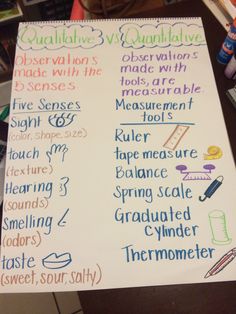 Qualitative vs Quantitative
Observations
made with the
5 senses
Five Senses
Sight
(color, shape, size)
touch
(texture)
Hearing
(sounds)
Smelling
(odors)
taste
(sweet, sour, salty)
Observations
made with
tools, are
measurable.
Measurement
tools
Ruler
Tape measure
Balance
Spring scale
Graduated
Cylinder
Thermometer